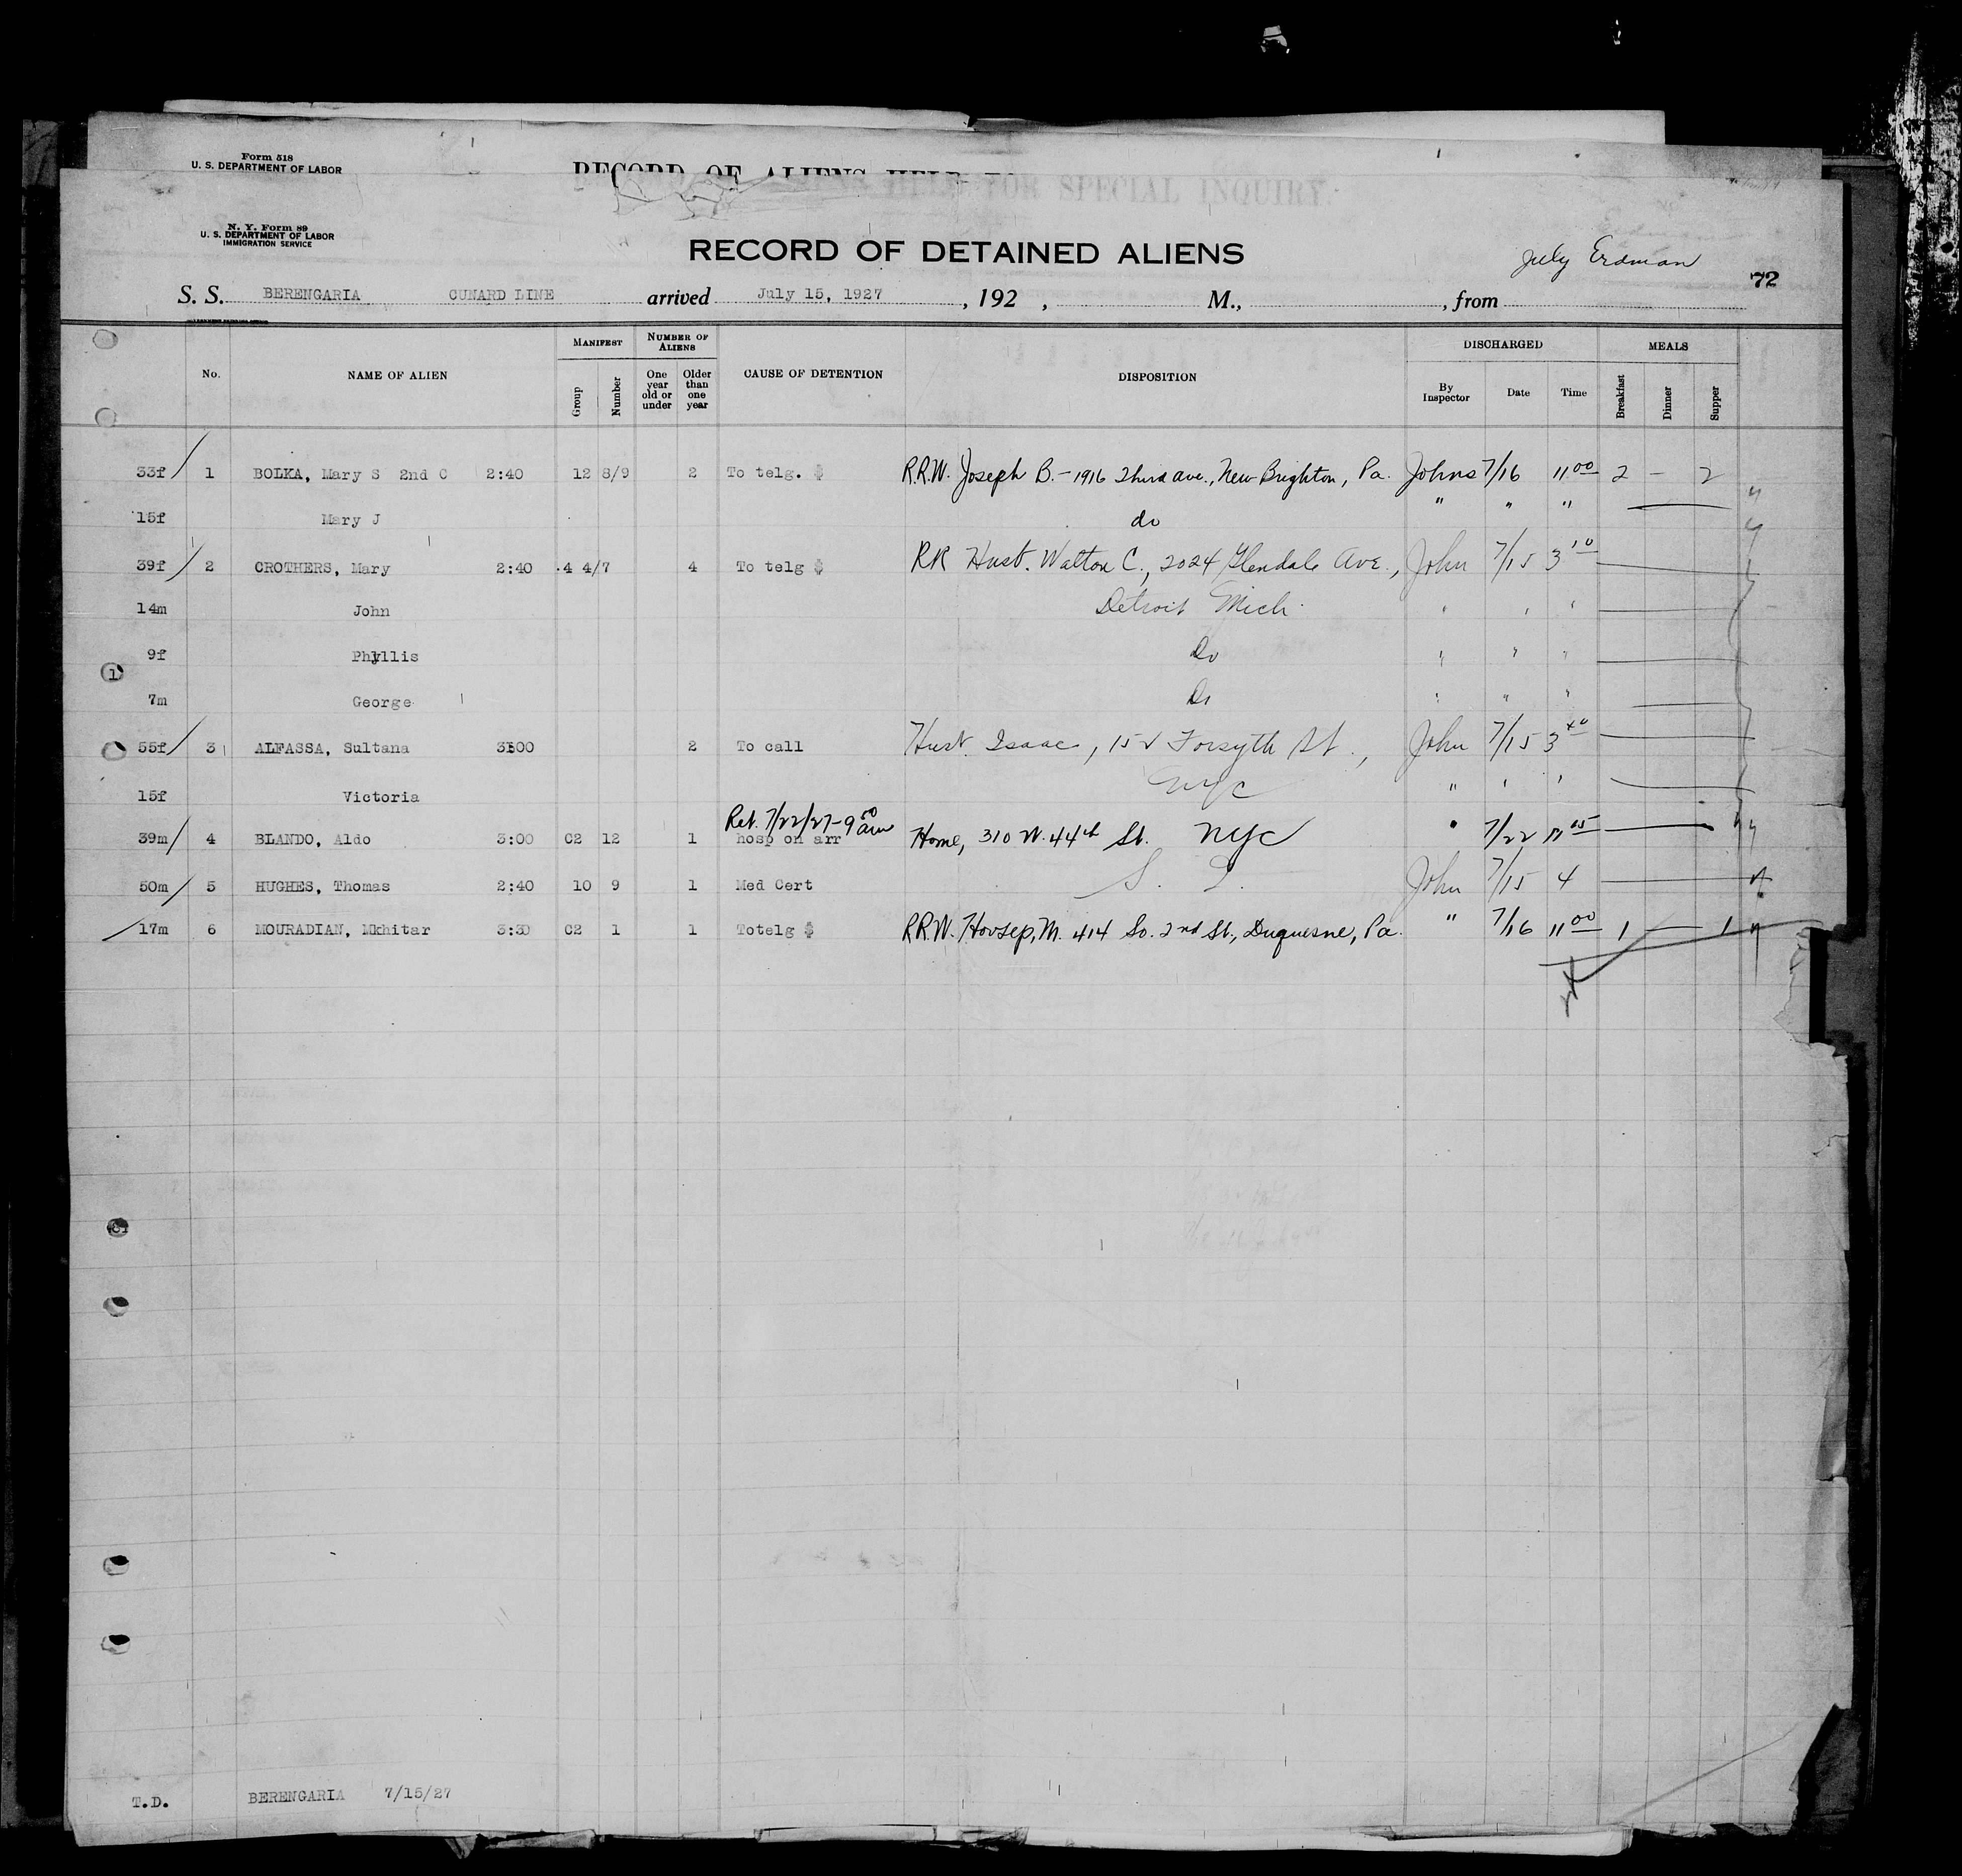 Form 518
U. S. DEPARTMENT OF LABOR
RECORD OF ALIENS HELD FOR SPECIAL INQUIRY
N. Y. Form 89
U. S. DEPARTMENT OF LABOR
IMMIGRATION SERVICE
RECORD OF DETAINED ALIENS
July Erdman
72
S. S. BERENGARIA CUNARD LINE arrived July 15, 1927, 192 , M., , from
No. NAME OF ALIEN MANIFEST Group Number NUMBER OF ALIENS One year old or under Older than one year CAUSE OF DETENTION DISPOSITION DISCHARGED By Inspector Date Time MEALS Breakfast Dinner Supper
33f 1 BOLKA, Mary S 2nd C 2:40 12 8/9 2 To telg. $ R.R.W. Joseph B. - 1916 Third ave., New Brighton, Pa. Johns 7/16 11 00 2 — 2
15f Mary J do " " "
39f 2 CROTHERS, Mary 2:40 4 4/7 4 To telg $ RR Husb. Walton C., 2024 Glendale Ave., John 7/15 3 10
14m John Detroit Mich. " " "
9f Phyllis Do " " "
7m George Do " " "
55f 3 ALFASSA, Sultana 3:00 2 To call Husb. Isaac, 152 Forsyth St., John 7/15 3 40
15f Victoria NYC " " "
Ret. 7/22/27-9 00 am
39m 4 BLANDO, Aldo 3:00 C2 12 1 hosp on arr Home, 310 W. 44th St. NYC " 7/22
50m 5 HUGHES, Thomas 2:40 10 9 1 Med Cert S. I. John 7/15 4
17m 6 MOURADIAN, Mkhitar 3:30 C2 1 1 Totelg $ R.R.W. Hovsep, M. 414 So. 2nd St., Duquesne, Pa. " 7/16 11 00 1 — 1
T.D. BERENGARIA 7/15/27